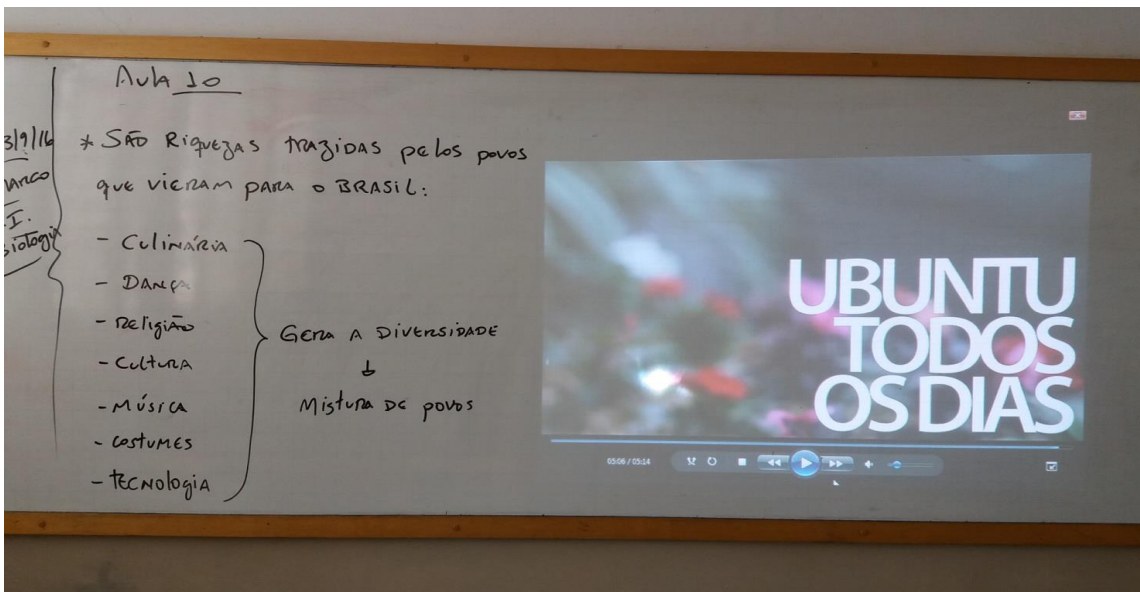 Aula 10
3/9/16
* São Riquezas trazidas pelos povos
que vieram para o Brasil:
I.
- Culinária
- Dança
- Religião
- Cultura
- Música
- Costumes
- Tecnologia
Gera a diversidade
↓
Mistura de povos
UBUNTU
TODOS
OS DIAS
05:06 / 05:14